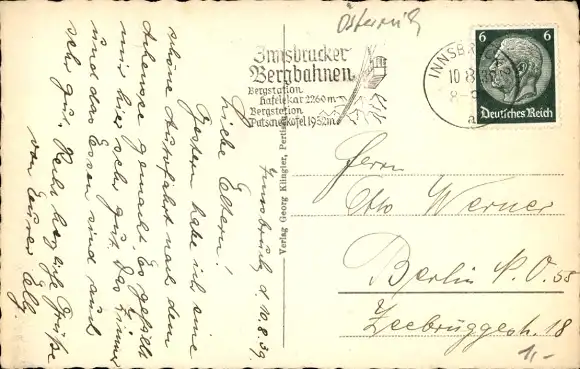 Österreich
Innsbrucker
Bergbahnen
Bergstation
Hafelekar 2260m
Bergstation
Patscherkofel 1952m
INNSBRUCK
10.8.39
8-
a
6 6
Deutsches Reich
Verlag Georg Klingler,
Innsbruck, d. 10.8.39.
Liebe Eltern!
Gestern habe ich eine
schöne Autofahrt nach dem
Achensee gemacht. Es gefällt
mir hier sehr gut. Das Zimmer
und das Essen sind auch
sehr gut. Recht herzliche Grüße
von Eurer
Herrn
Otto Werner
Berlin N.O. 55
Zeebrüggestr. 18
1,-